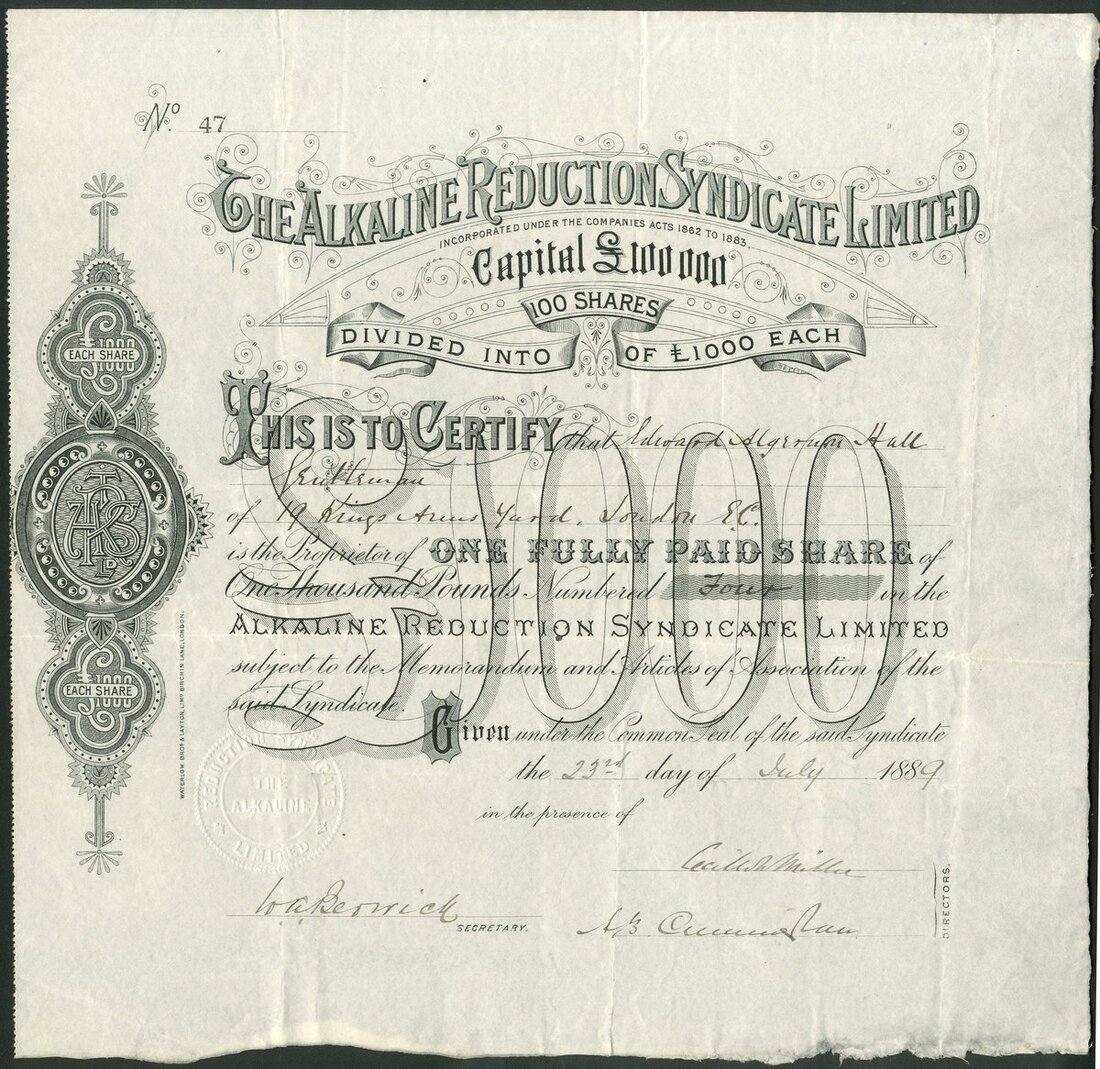 No. 47
THE ALKALINE REDUCTION SYNDICATE LIMITED
INCORPORATED UNDER THE COMPANIES ACTS 1862 TO 1883.
Capital £100 000
100 SHARES
DIVIDED INTO OF £1000 EACH
£1000
EACH SHARE
THIS IS TO CERTIFY that Edward Algernon Hall
Gentleman
of 19 Kings Arms Yard, London E.C.
is the Proprietor of ONE FULLY PAID SHARE of
One Thousand Pounds Numbered Four in the
ALKALINE REDUCTION SYNDICATE LIMITED
subject to the Memorandum and Articles of Association of the
said Syndicate.
£1000
EACH SHARE
£1000
Given under the Common Seal of the said Syndicate
the 23rd day of July 1889
in the presence of
WATERLOW BROS & LAYTON, LIMD BIRCHIN LANE, LONDON.
REDUCTION SYNDICATE
THE
ALKALINE
LIMITED
W A Berwick
SECRETARY.
DIRECTORS.